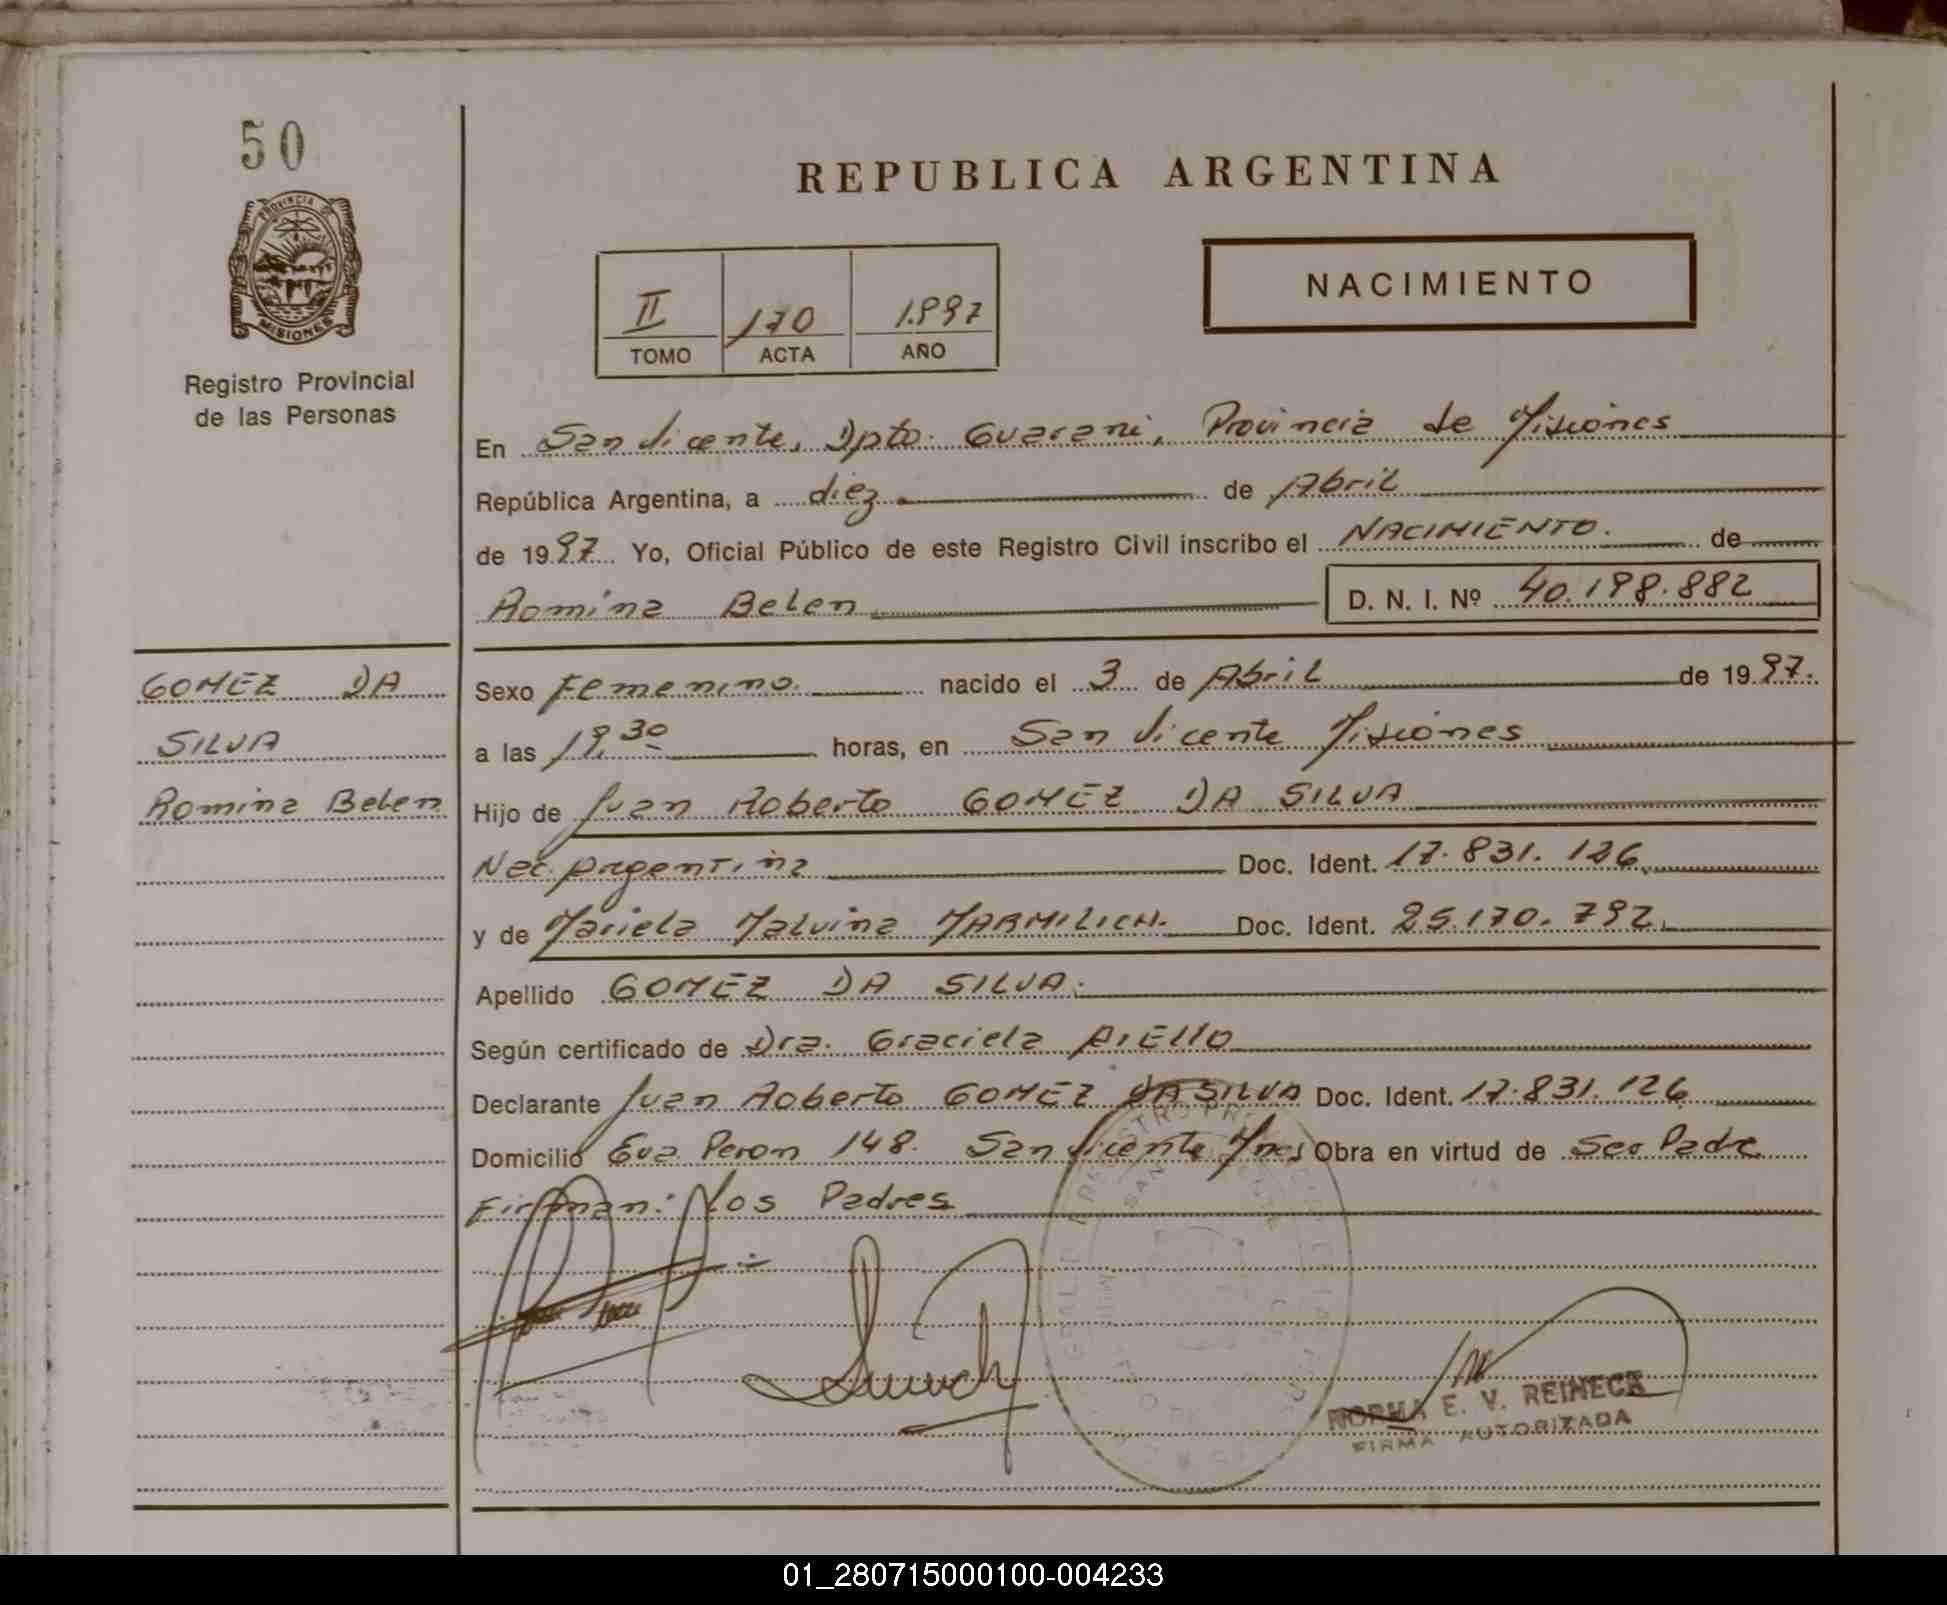 50
PROVINCIA DE
MISIONES
Registro Provincial
de las Personas
REPUBLICA ARGENTINA
NACIMIENTO
II 170 1.997
TOMO ACTA AÑO
En San Vicente, Dpto. Guarani, Provincia de Misiones
República Argentina, a diez de Abril
de 1997 Yo, Oficial Público de este Registro Civil inscribo el NACIMIENTO. de
Romina Belen D. N. I. Nº 40.198.882
GOMEZ DA
SILVA
Romina Belen
Sexo Femenino. nacido el 3 de Abril de 1997.
a las 19,30 horas, en San Vicente Misiones
Hijo de Juan Roberto GOMEZ DA SILVA
Nac. Argentina Doc. Ident. 17.831.126
y de Mariela Malvina MARMILICH. Doc. Ident. 25.170.792.
Apellido GOMEZ DA SILVA.
Según certificado de Dra. Graciela AIELLO
Declarante Juan Roberto GOMEZ DA SILVA Doc. Ident. 17.831.126
Domicilio Eva Peron 148. San Vicente Mnes Obra en virtud de Ser Padre
Firman: Los Padres
NORMA E. V. REINECK
FIRMA AUTORIZADA
01_280715000100-004233